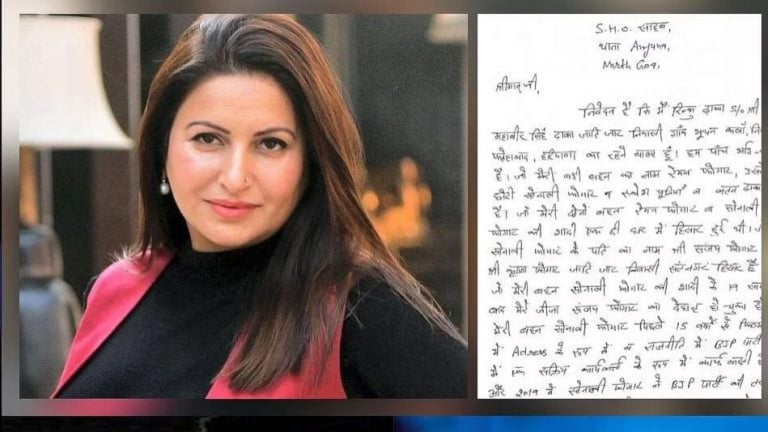 S.H.O. साहब,
थाना Anjuna,
North Goa.
श्रीमान् जी,
निवेदन है कि मैं रिन्कु ढाका S/o श्री
महाबीर सिंह ढाका जाति जाट निवासी गाँव भूथन कलाँ,
फतेहाबाद, हरियाणा का रहने वाला हूँ। हम पाँच
है। जो मेरी बड़ी बहन का नाम रेमन फोगाट,
छोटी सोनाली फोगाट व व वतन ढाका
है। जो मेरी दोनों बहन रेमन फोगाट व सोनाली
फोगाट की शादी एक ही घर में हिसार हुई थी।
सोनाली फोगाट के पति का नाम श्री संजय फोगाट
श्री फोगाट जाति जाट निवासी हिसार है
जो मेरी बहन सोनाली फोगाट की शादी के
बाद मेरे जीजा संजय फोगाट का देहांत हो चुका
मेरी बहन सोनाली फोगाट पिछले 15 वर्षों से
में के रूप में व राजनीति में BJP पार्टी
में एक सक्रिय कार्यकर्ता के रूप में कार्य करती
और 2019 में सोनाली फोगाट ने BJP पार्टी की